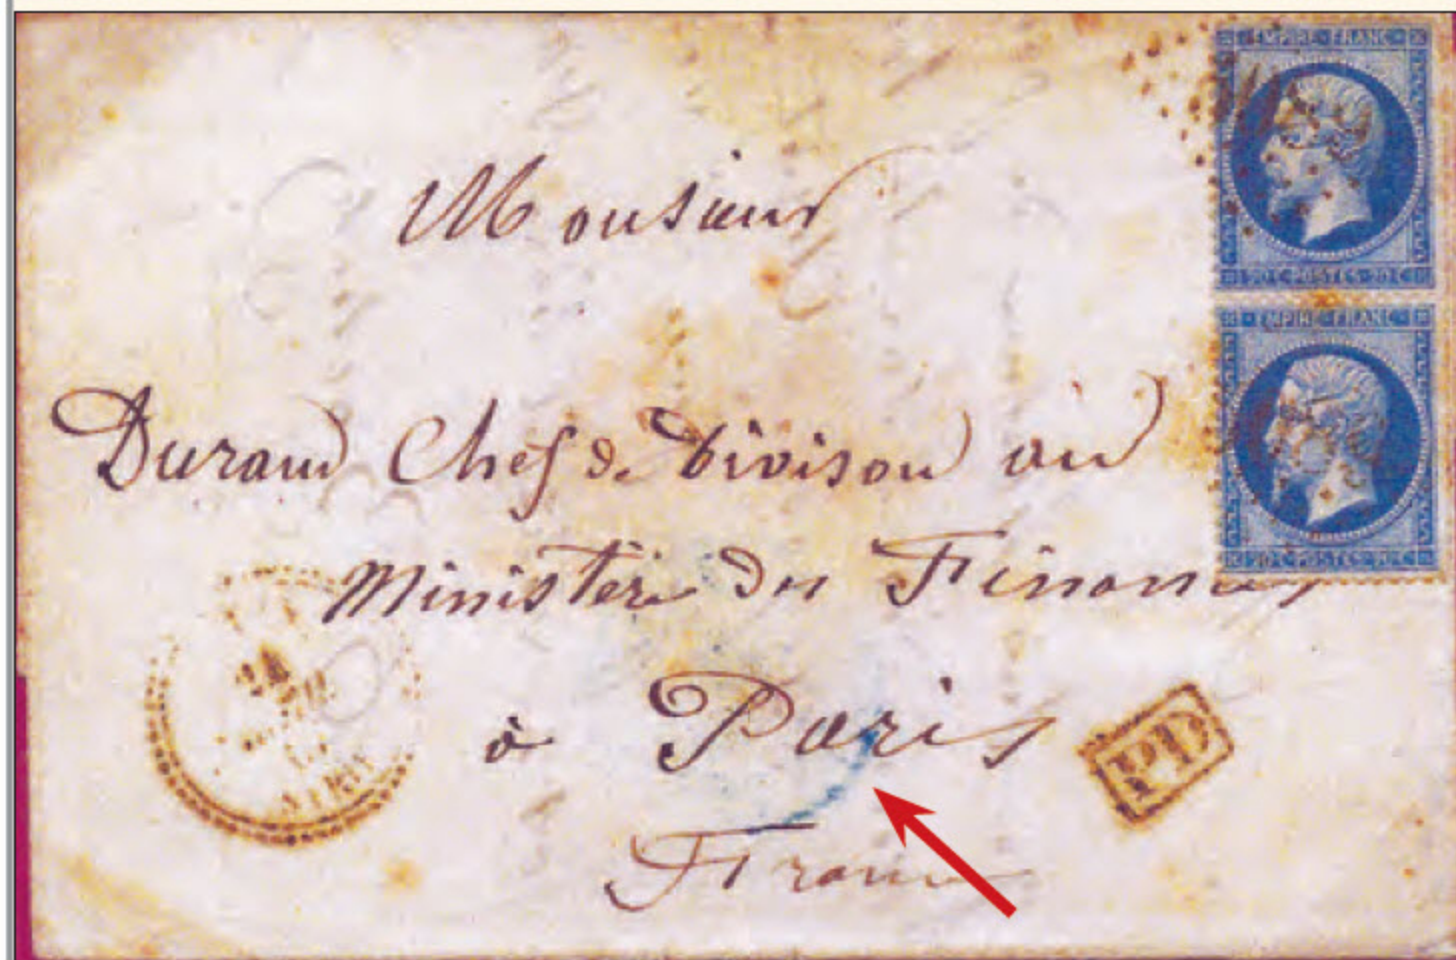 EMPIRE FRANC
20 C POSTES 20 C
EMPIRE FRANC
20 C POSTES 20 C
Monsieur
Durand Chef de Divison au
Ministère des Finances
à Paris
France
PD